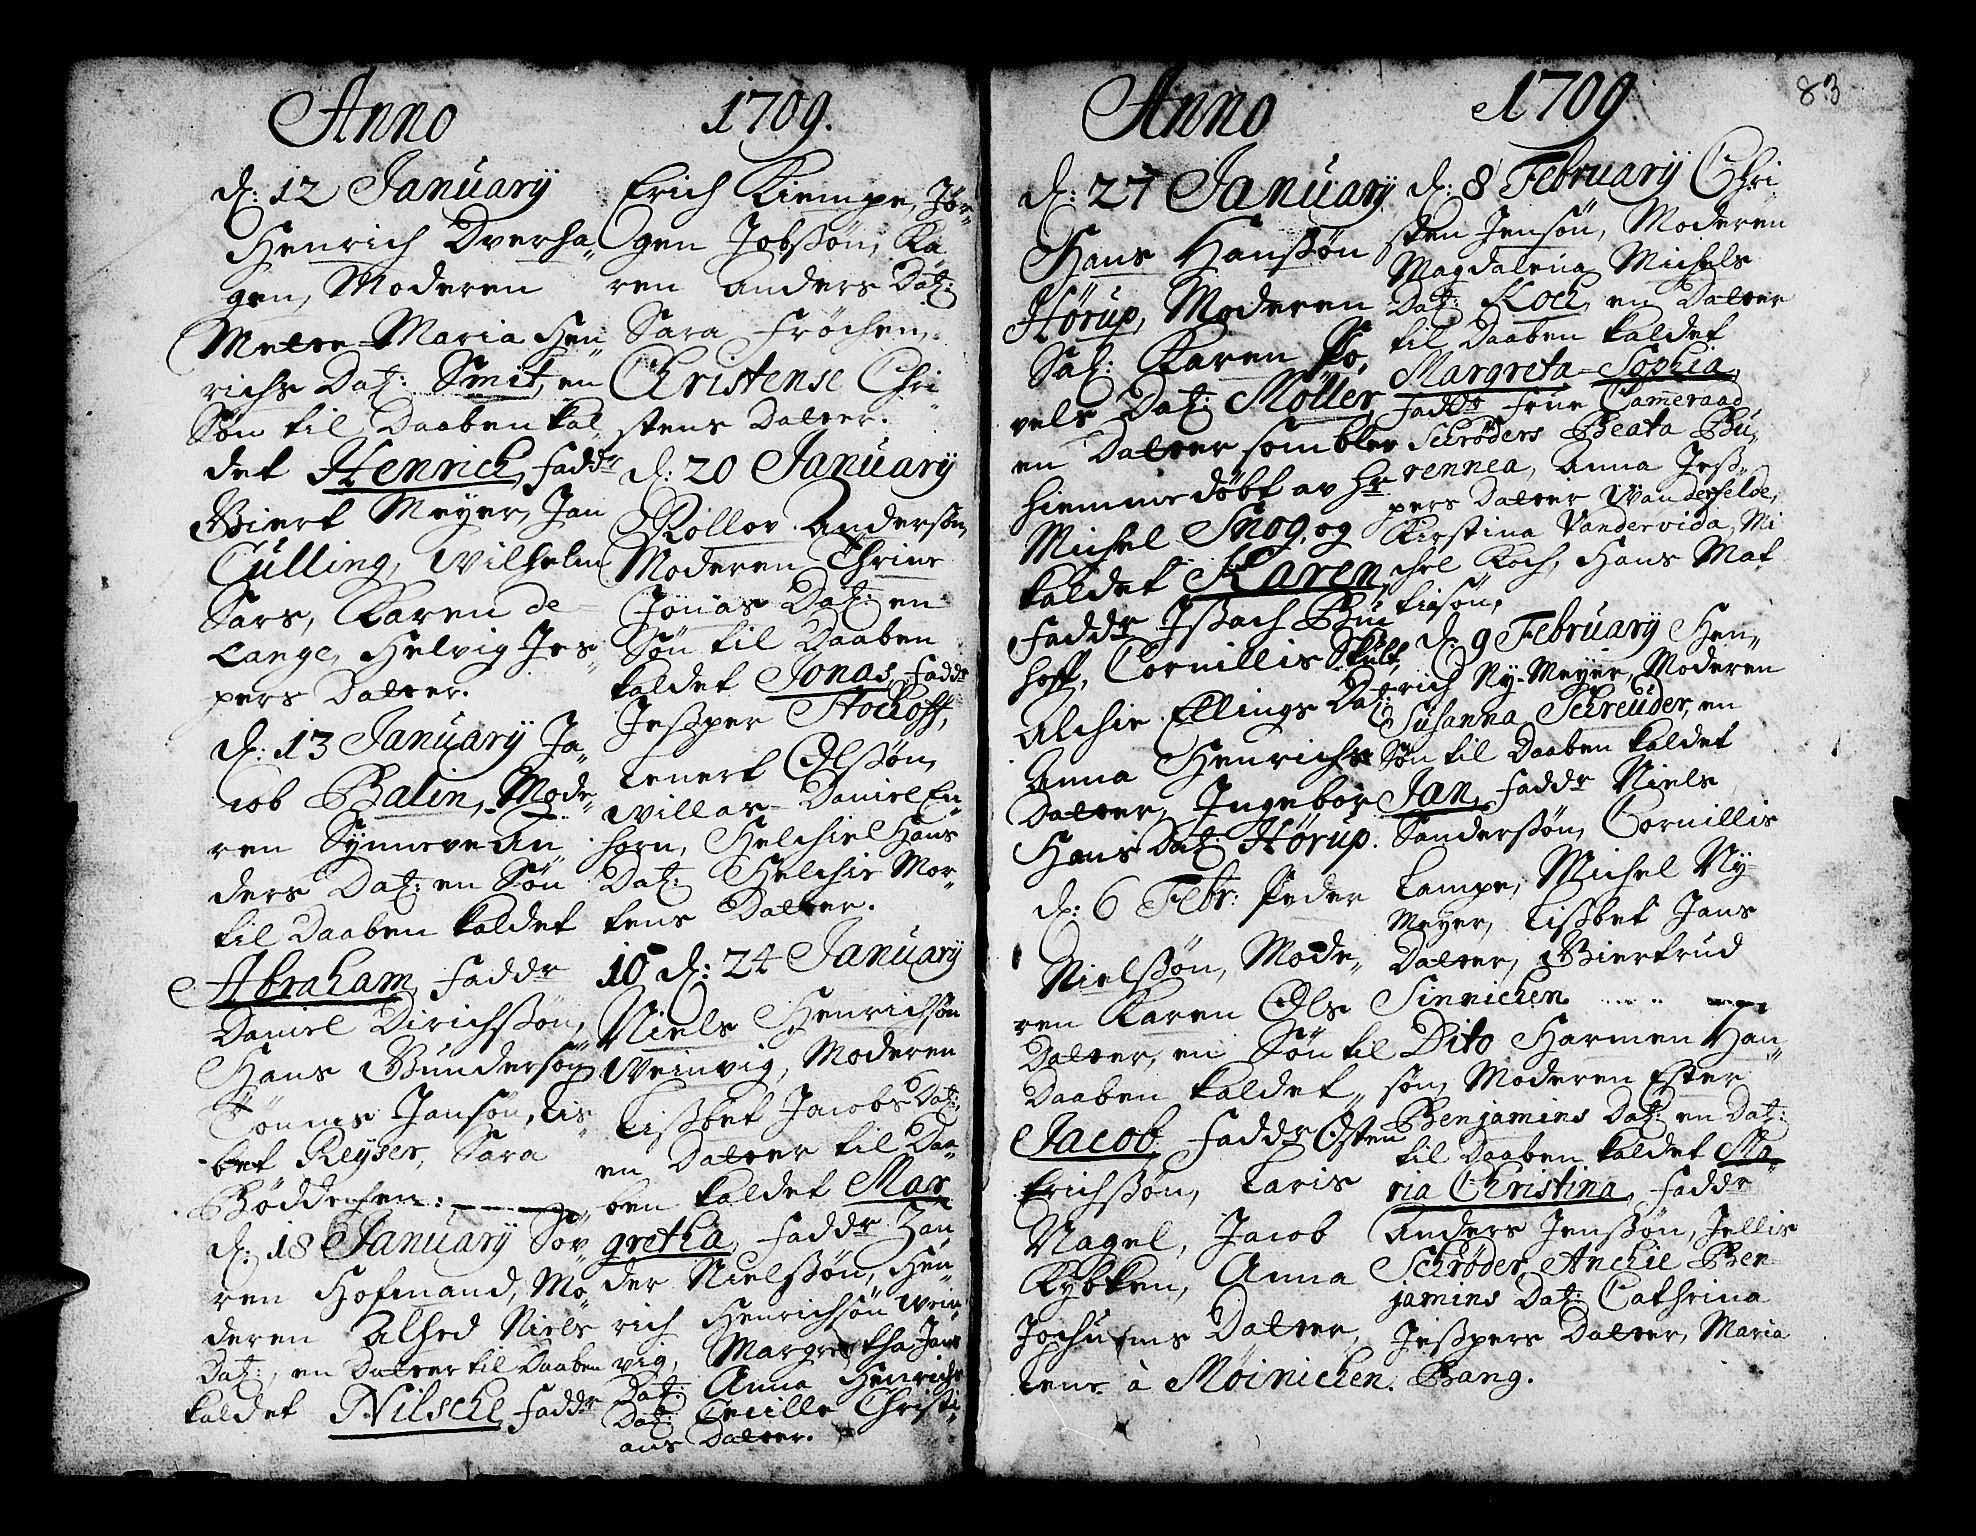 Anno 1709.
d: 12 January
Henrich Dverha„
gen, Moderen
Mette-Maria Hen„
richs Dat: Smit, en
Søn til Daaben kal„
det Henrich, Faddr
Biert Meyer, Jan
Culling, Wilhelm
Sars, Karen de
Lange, Helvig Jes„
pers Datter.
d: 13 January Ja„
cob Balin, Mode„
ren Synneve An„
ders Dat: en Søn
til Daaben kaldet
Abraham, Faddr
Daniel Dirichssøn,
Hans Gundersøn
Tönnis Jansøn, Lis„
bet Reyser, Sara
Böddechen:
d: 18 January Sov„
ren Hofmand, Mo„
deren Alhed Niels
Dat:, en Datter til Daaben
kaldet Nilsche, Faddr
Erich Kiempe, Jør„
gen Jobssøn, Ka„
ren Anders Dat:
Sara Fröchen,
Christense Chri„
stens Datter.
d: 20 January
Rollov Anderssøn,
Moderen Thrine
Jonas Dat: en
Søn til Daaben
kaldet Jonas, Faddr
Jessper Stockhoff,
Lenert Olssøn,
Willas- Daniel En„
horn, Helchiel Hans
Dat: Helchie Mor„
tens Datter.
10 d: 24 January
Niels Henrichsøn
Weinvig, Moderen
Lissbet Jacobs Dat:,
en Datter til Daa„
ben kaldet Mar„
gretha, Faddr Han„
der Nielssøn, Hen„
rich Henrichsøn Wein„
vig, Margretha Jans
Dat: Anna Henrichs
Dat: Cecille Christi„
ans Datter.
Anno 1709. 83
d: 27 January
Hans Hanssøn
Hørup, Moderen
Sal: Karen Po„
vels Dat: Möller,
en Datter som blev
hiemmedöbt av Hr
Michel Snog, og
kaldet Karen,
Faddr Issach Bu„
hoff, Cornillis Skült,
Alchie Ellings Dat:
Anna Henrichs
Datter, Ingebor
Hans Dat: Hørup.
d: 6 Febr: Peder
Nielssøn, Mode„
ren Karen Ols
Datter, en Søn til
Daaben kaldet„
Jacob, Faddr Osten
Erichssøn, Laris
Nagel, Jacob
Kybken, Anna
Jochums Datter,
Lene à Möinichen.
d: 8 February Chri„
sten Jensøn, Moderen
Magdalena Michels
Dat: Koch, en Datter
til Daaben kaldet
Margreta-Sophia,
Faddr Frue Cameraad
Schrøders Beata Bu„
rennea, Anna Jess„
pers Datter Wanderfelde,
Kirstina Vandervida, Mi„
chel Koch, Hans Mat„
tissøn,
d: 9 February Hen„
rich Ny-Meyer, Moderen
Susanna Schreuder, en
Søn til Daaben kaldet
Jan, Faddr Niels
Sanderssøn, Cornillis
Lampe, Michel Ny-
Meyer, Lissbet Jans
Datter, Biertrud
Sinnichen.
Dito Harmen Han„
søn, Moderen Ester
Benjamins Dat: en Dat:
til Daaben kaldet Ma„
ria Christina, Faddr
Anders Jenssøn, Jellis
Schrøder, Anchie Ben„
jamins Dat: Cathrina
Jesspers Datter, Maria
Bang.